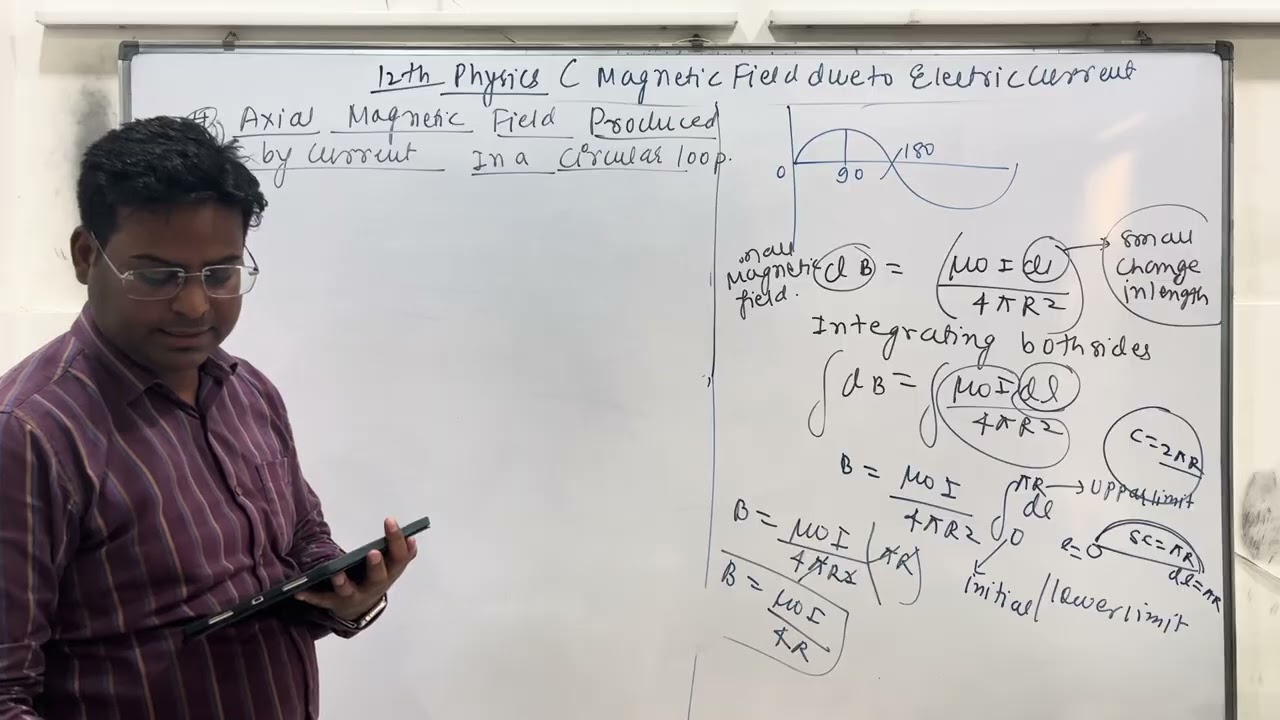 12th Physics C Magnetic Field due to Electric Current
Axial Magnetic Field Produced
by current In a circular loop.
0 90 180
Magnetic
field.
dB = μ0 I dl / 4πR2
small
change
in length
Integrating both sides
∫dB = ∫ μ0 I dl / 4πR2
C = 2πR
B = μ0 I / 4πR2 ∫ πR dl 0
upper limit
Initial / lower limit
SC = πR
l = 0
dl = πR
B = μ0 I / 4πR2 (πR)
B = μ0 I / 4R